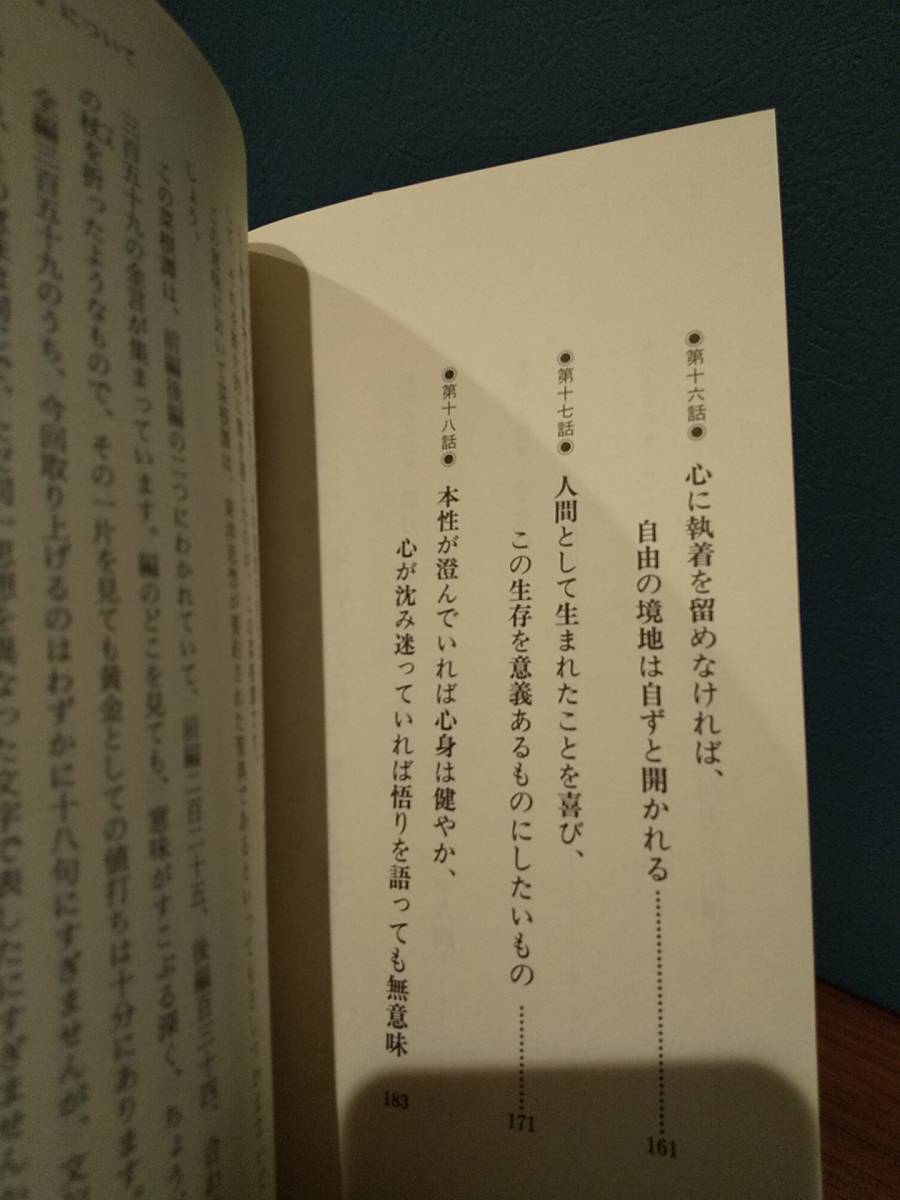 ●第十六話● 心に執着を留めなければ、
自由の境地は自ずと開かれる…………161
●第十七話● 人間として生まれたことを喜び、
この生存を意義あるものにしたいもの…………171
●第十八話● 本性が澄んでいれば心身は健やか、
心が沈み迷っていれば悟りを語っても無意味 183
について
しょう。
この菜根譚は、前編後編の二つにわかれていて、前編二百二十五、後編百三十四、合わ
三百五十九の金言が集まっています。編のどこを見ても、意味がすこぶる深く、ちょう
の枝を折ったようなもので、その一片を見ても黄金としての値打ちは十分にあります
全編三百五十九のうち、今回取り上げるのはわずかに十八句にすぎませんが、文
同一思想を異なった文字で表したにすぎません